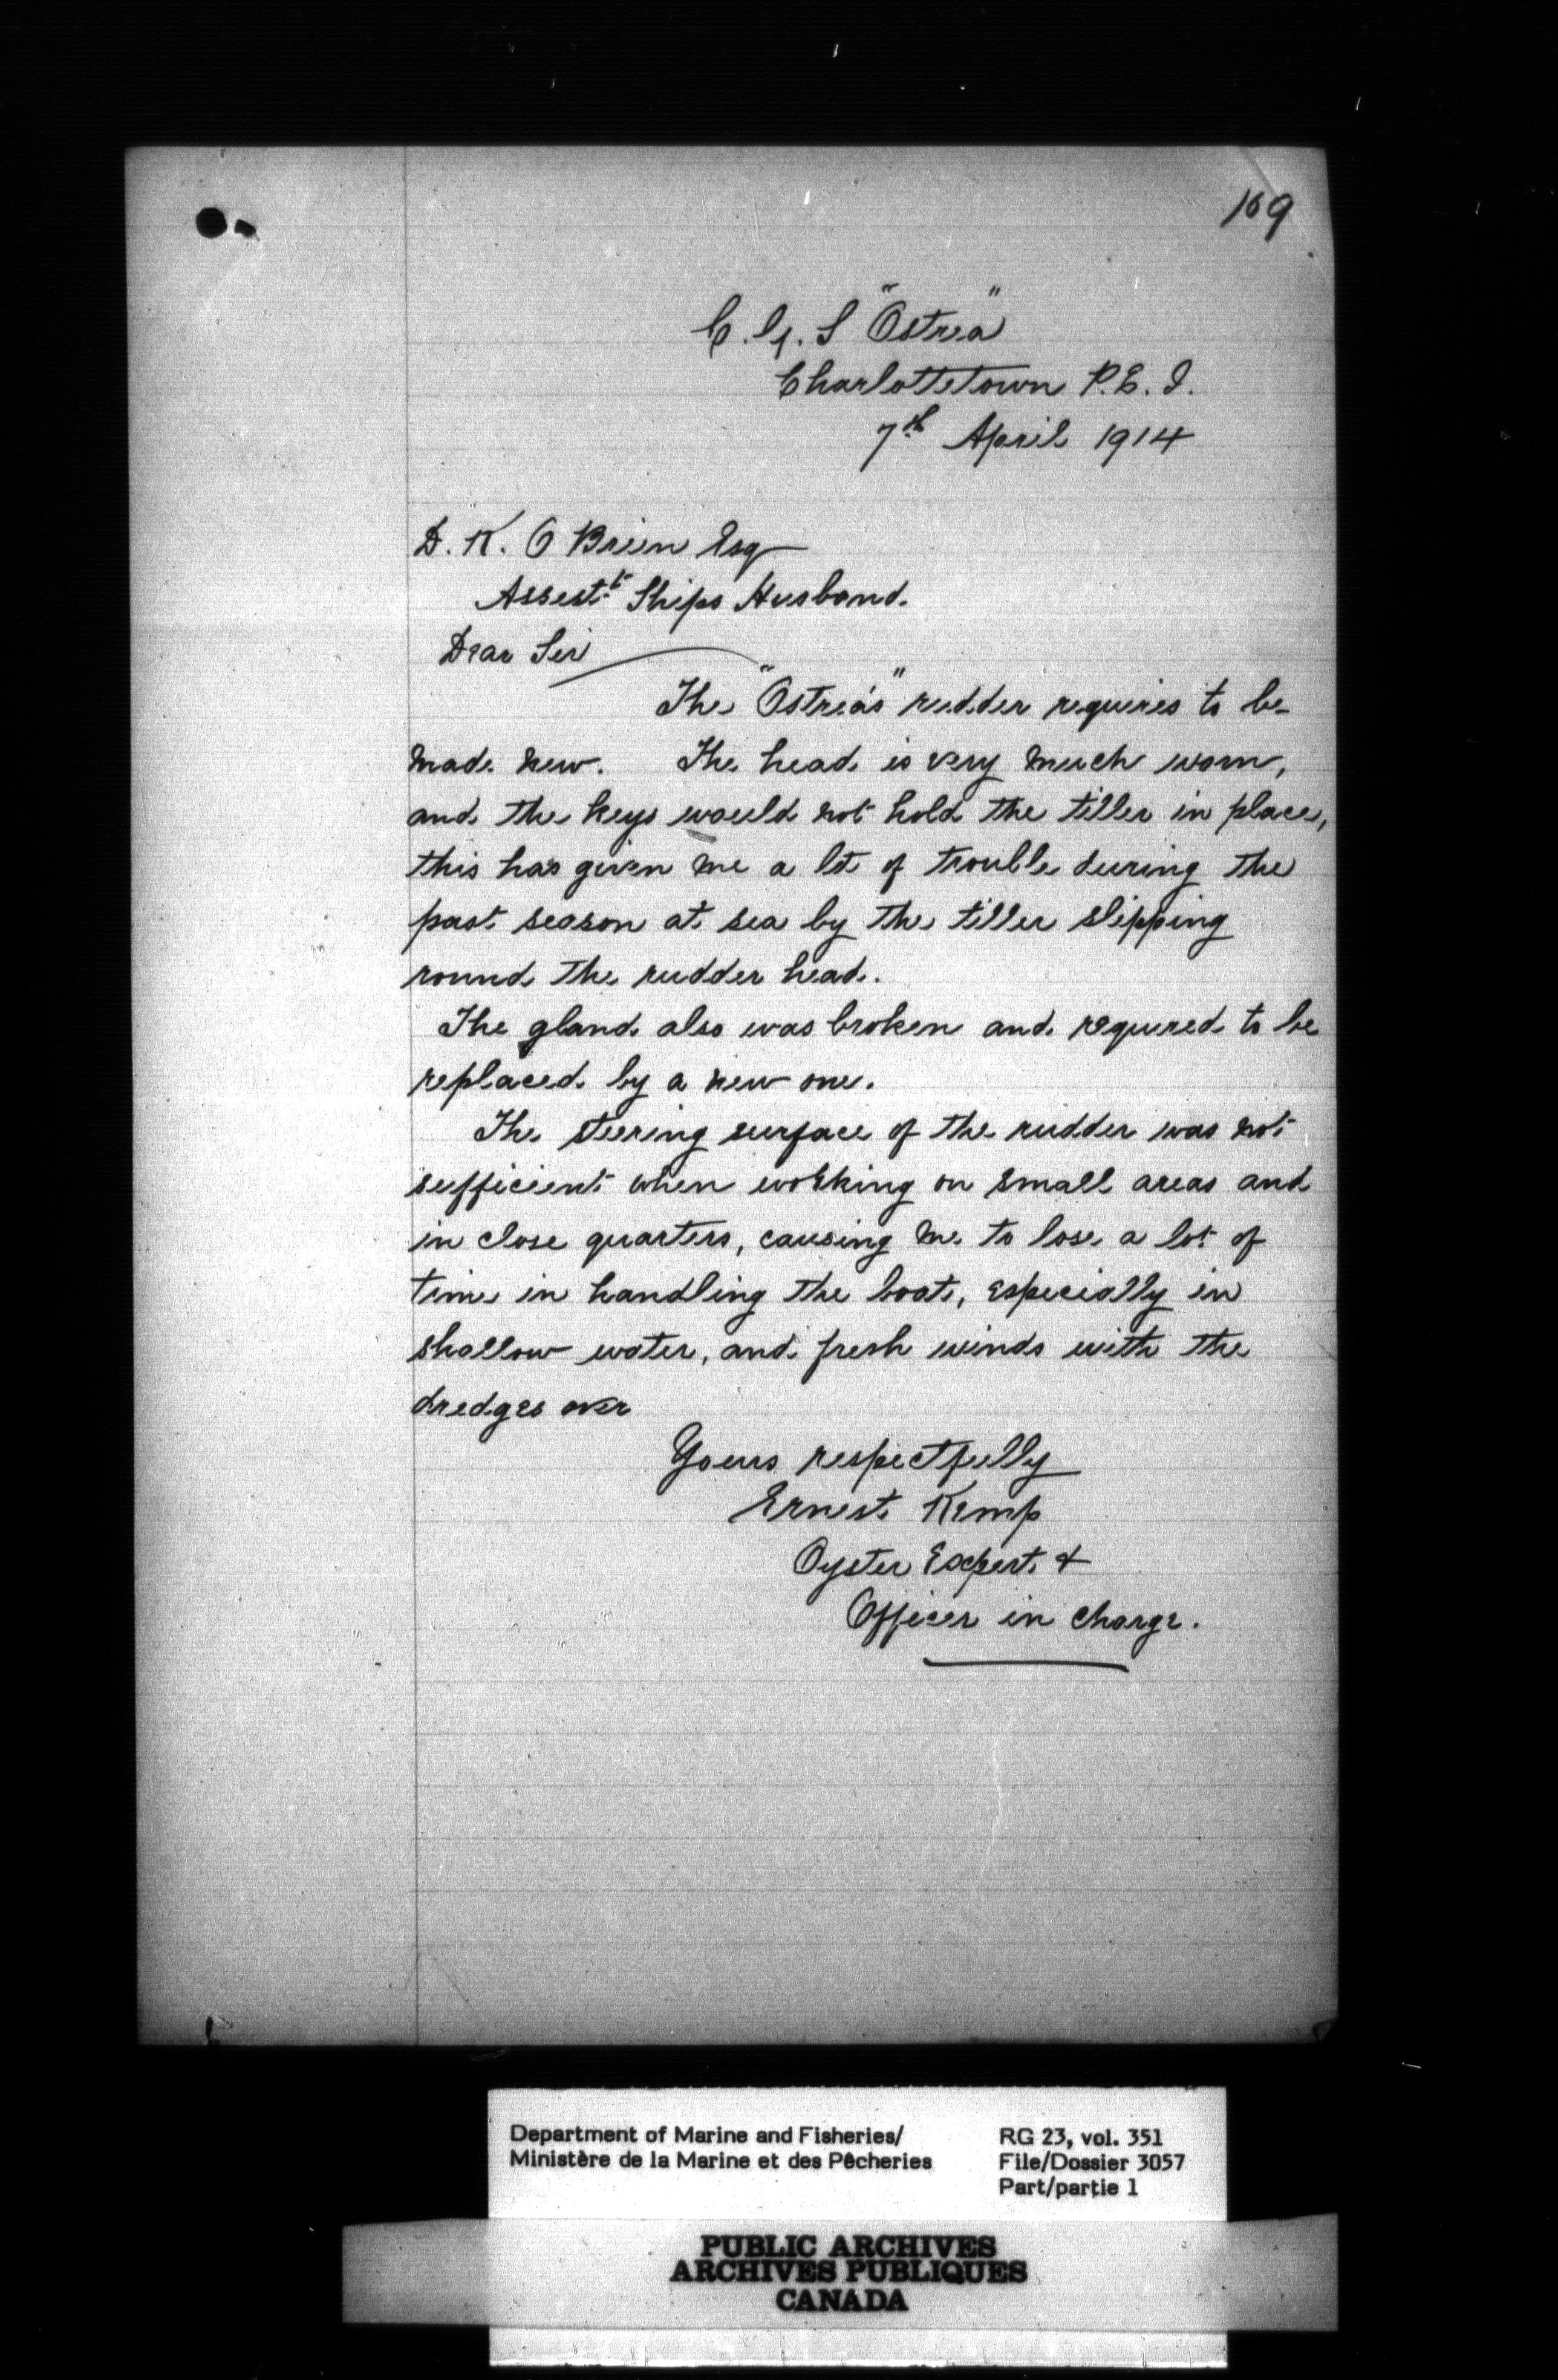 169
C. G. S "Ostrea"
Charlottetown P. E. I.
7th April 1914
D. K. O Brien Esq
Assestt Ships Husband.
Dear Sir
The "Ostrea's" rudder requires to be
made new. The head is very much worn,
and the keys would not hold the tiller in place,
this has given me a lot of trouble during the
past season at sea by the tiller slipping
round the rudder head.
The gland also was broken and required to be
replaced by a new one.
The steering surface of the rudder was not
sufficient when working on small areas and
in close quarters, causing me to lose a lot of
time in handling the boat, especially in
shallow water, and fresh winds with the
dredges over
Yours respectfully
Ernest Kemp
Oyster Expert &
Officer in charge.
Department of Marine and Fisheries/
Ministère de la Marine et des Pêcheries
RG 23, vol. 351
File/Dossier 3057
Part/partie 1
PUBLIC ARCHIVES
ARCHIVES PUBLIQUES
CANADA